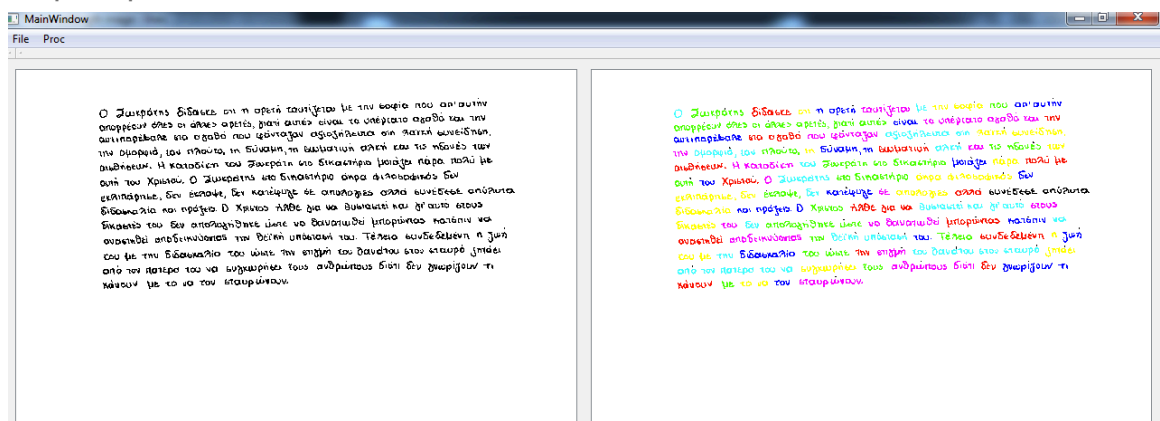 MainWindow
File Proc
Ο Σωκράτης δίδασκε οτι η αρετή ταυτίζεται με την σοφία που απ' αυτήν
απορρέουν όλες οι άλλες αρετές, γιατί αυτές είναι το υπέρτατο αγαθό και την
αντιπαρέβαλε στα αγαθά που φάνταζαν αξιοζήλευτα στη λαϊκή συνείδηση,
την ομορφιά, τον πλούτο, τη δύναμη, τη σωματική αλκή και τις ηδονές των
αισθήσεων. Η καταδίκη του Σωκράτη στο δικαστήριο μοιάζει πάρα πολύ με
αυτή του Χριστού. Ο Σωκράτης στο δικαστήριο σαν φιλοσοφικός δεν
εκλιπάρησε, δεν έκλαψε, δεν κατέφυγε σε απολογίες αλλά συνέδεσε απόλυτα
διδασκαλία και πράξεις. Ο Χριστος ήλθε για να θυσιαστεί και γι' αυτό στους
δικαστές του δεν απολογήθηκε ώστε να θανατωθεί μπορώντας κατόπιν να
αναστηθεί αποδεικνύοντας την θεϊκή υπόστασή του. Τέλεια συνδεδεμένη η ζωή
του με την διδασκαλία του ώστε την στιγμή του θανάτου στον σταυρό ζητάει
από τον πατέρα του να συγχωρήσει τους ανθρώπους διότι δεν γνωρίζουν τι
κάνουν με το να τον σταυρώνουν.
Ο Σωκράτης δίδασκε οτι η αρετή ταυτίζεται με την σοφία που απ' αυτήν
απορρέουν όλες οι άλλες αρετές, γιατί αυτές είναι το υπέρτατο αγαθό και την
αντιπαρέβαλε στα αγαθά που φάνταζαν αξιοζήλευτα στη λαϊκή συνείδηση,
την ομορφιά, τον πλούτο, τη δύναμη, τη σωματική αλκή και τις ηδονές των
αισθήσεων. Η καταδίκη του Σωκράτη στο δικαστήριο μοιάζει πάρα πολύ με
αυτή του Χριστού. Ο Σωκράτης στο δικαστήριο σαν φιλοσοφικός δεν
εκλιπάρησε, δεν έκλαψε, δεν κατέφυγε σε απολογίες αλλά συνέδεσε απόλυτα
διδασκαλία και πράξεις. Ο Χριστος ήλθε για να θυσιαστεί και γι' αυτό στους
δικαστές του δεν απολογήθηκε ώστε να θανατωθεί μπορώντας κατόπιν να
αναστηθεί αποδεικνύοντας την θεϊκή υπόστασή του. Τέλεια συνδεδεμένη η ζωή
του με την διδασκαλία του ώστε την στιγμή του θανάτου στον σταυρό ζητάει
από τον πατέρα του να συγχωρήσει τους ανθρώπους διότι δεν γνωρίζουν τι
κάνουν με το να τον σταυρώνουν.